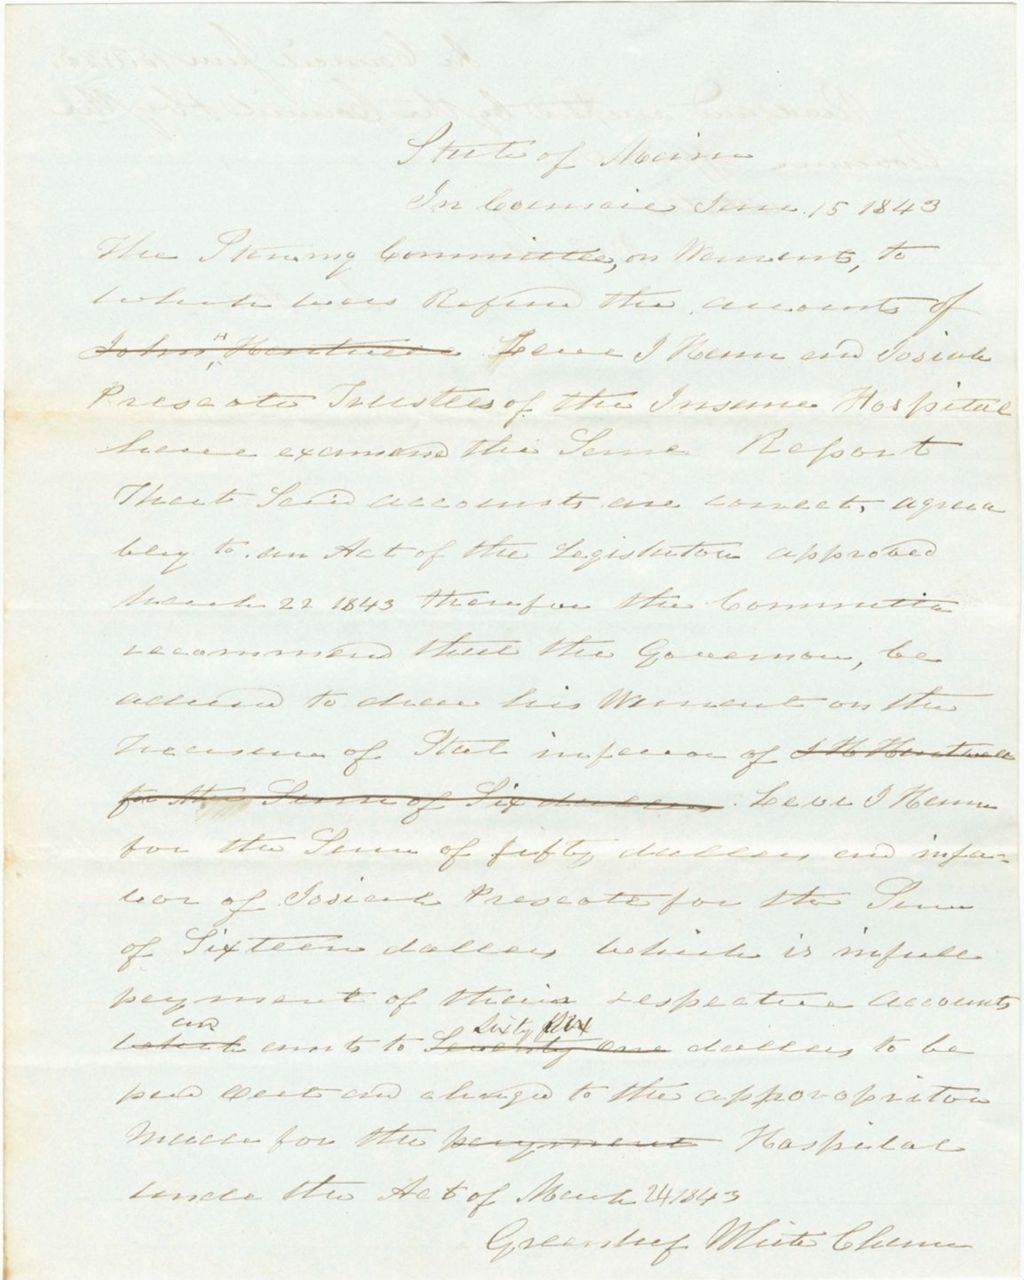 State of Maine
In Council June 15 1843
The Standing Committee, on Warrants, to
which was Refered the accounts of
John H Hartwell Levi J Ham and Josiah
Prescott Trustees of the Insane Hospital
have examined the Same Report
That Said accounts are correct, agrea
bly to an Act of the Legislature approved
March 22 1843 therefore the Committee
recommend that the Governor, be
advised to draw his Warrant on the
Treasurer of State in favor of J H Hartwell
for the Sum of Six dollars Levi J Ham
for the Sum of fifty dollars and in fa-
vor of Josiah Prescott for the Sum
of Sixteen dollars which is in full
payment of their respective accounts
and Sixty Six
which amts to Seventy one dollars to be
paid out and charged to the appropriation
Made for the payment Hospital
under the Act of March 24 1843
Greenlief White Chairm